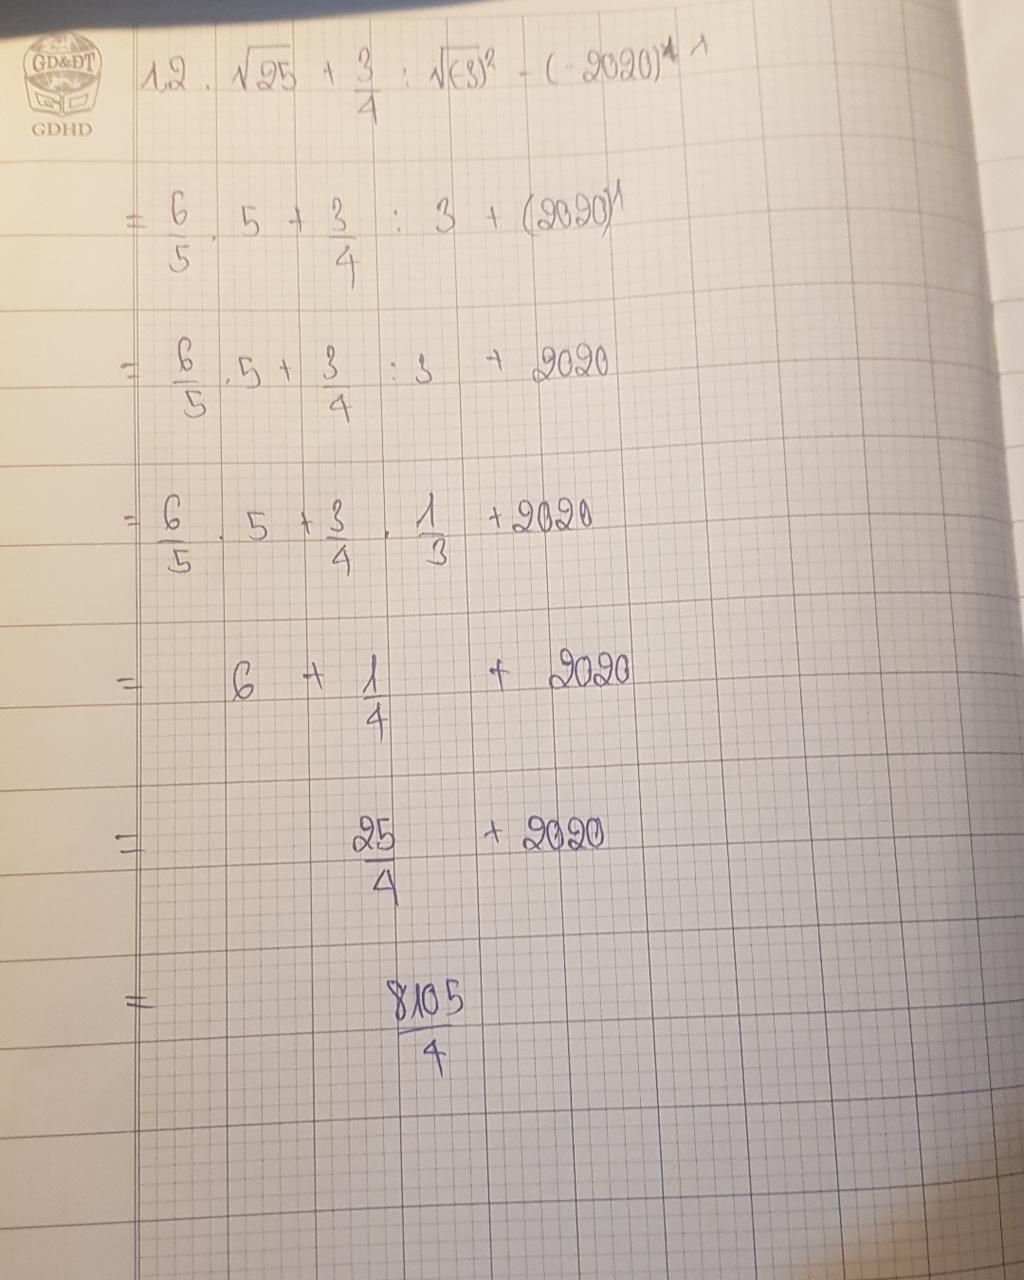 GD&ĐT
GDHD
1,2 . √25 + 3/4 : √(-3)² - (-2020)¹
= 6/5 . 5 + 3/4 : 3 + (2020)¹
= 6/5 . 5 + 3/4 : 3 + 2020
= 6/5 . 5 + 3/4 . 1/3 + 2020
= 6 + 1/4 + 2020
= 25/4 + 2020
= 8105/4